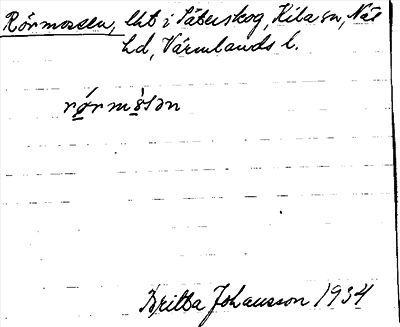 Rörmossen, lht i Säterskog, Kila sn, Näs
hd, Värmlands l.
rørmòsən
Britta Johansson 1934